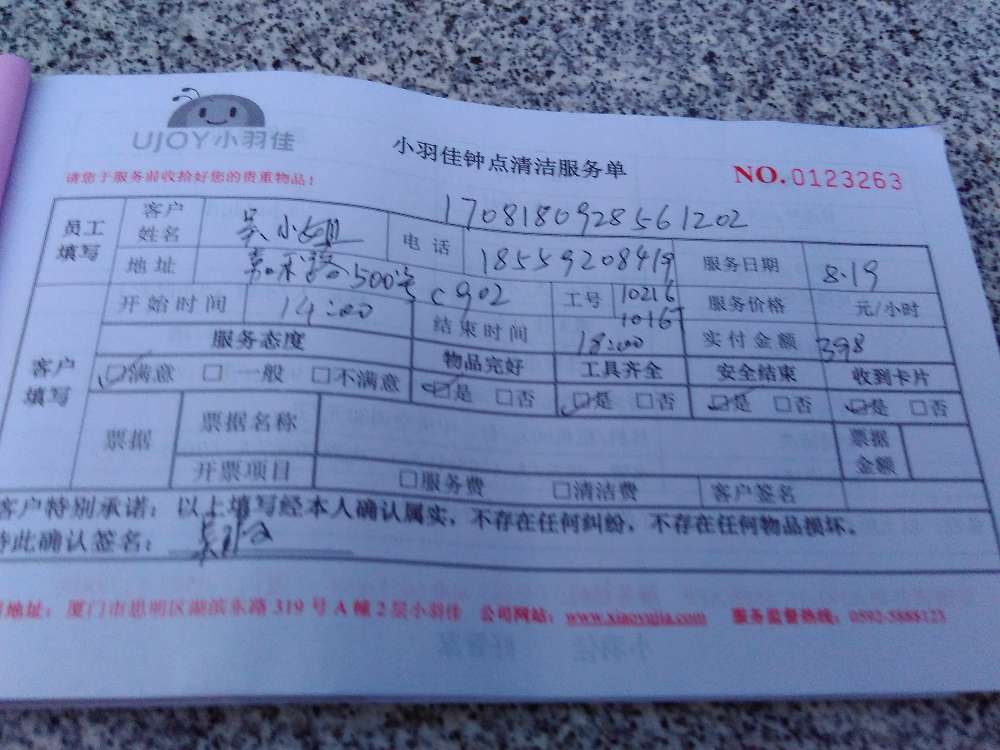 UJOY小羽佳
小羽佳钟点清洁服务单
NO.0123263
请您于服务前收拾好您的贵重物品！
1708180928561202
员工填写 客户姓名 吴小姐 电话 18559208419 服务日期 8.19
地址 嘉禾路500号C902 工号 10216 10167 服务价格 元/小时
客户填写 开始时间 14:00 结束时间 18:00 实付金额 398
服务态度 物品完好 工具齐全 安全结束 收到卡片
☑满意 □一般 □不满意 ☑是 □否 ☑是 □否 ☑是 □否 ☑是 □否
票据 票据名称 票据金额
开票项目 □服务费 □清洁费 客户签名
客户特别承诺：以上填写经本人确认属实，不存在任何纠纷，不存在任何物品损坏。
特此确认签名：
地址：厦门市思明区湖滨东路319号A幢2层小羽佳 公司网站：www.xiaoyujia.com 服务监督热线：0592-5888123